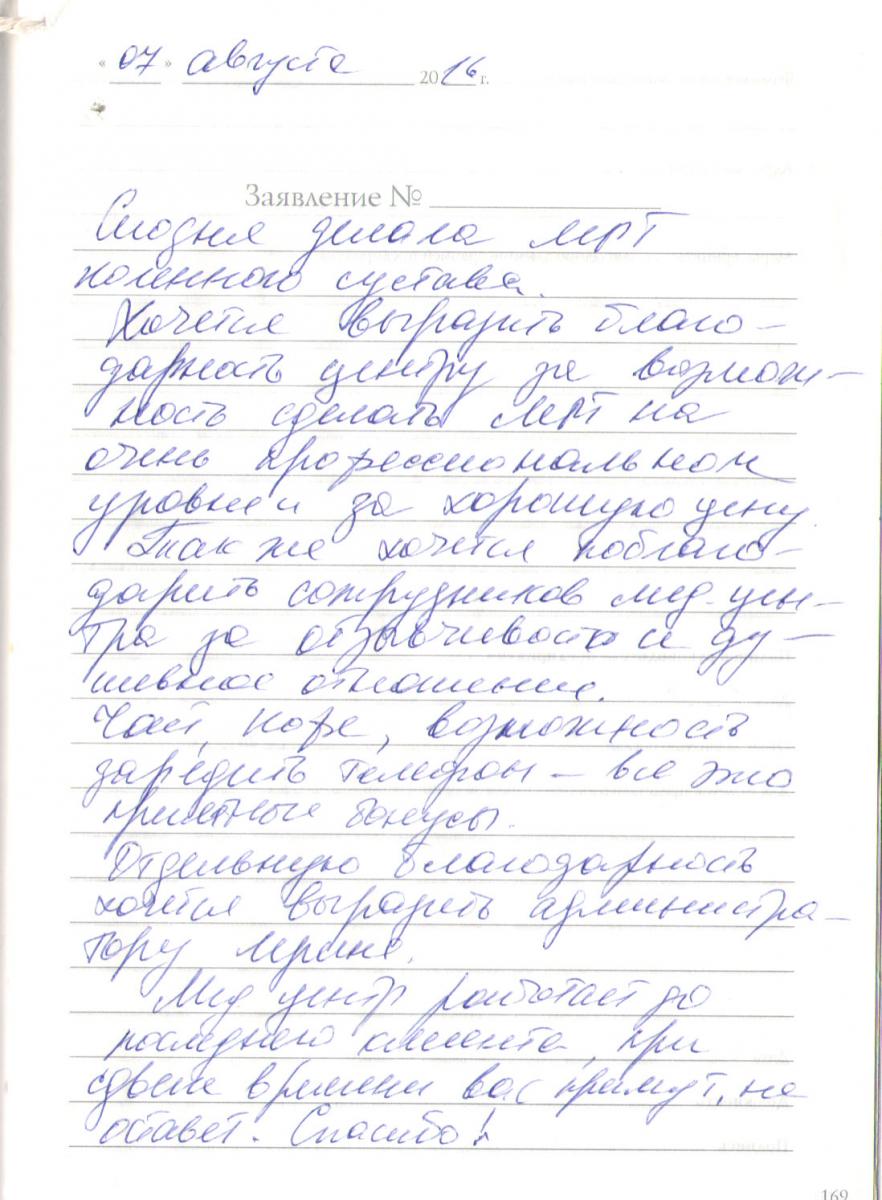 « 07 » августа 2016 г.
Заявление №
Сегодня делала МРТ
коленного сустава.
Хочется выразить благо-
дарность центру за возмож-
ность сделать МРТ на
очень профессиональном
уровне и за хорошую цену.
Так же хочется поблаго-
дарить сотрудников мед. цен-
тра за отзывчивость и ду-
шевное отношение.
Чай, кофе, возможность
зарядить телефон – все это
приятные бонусы.
Отдельную благодарность
хочется выразить администра-
тору Ирине.
Мед центр работает до
последнего клиента, при
времени вас примут, не
оставят. Спасибо!
169